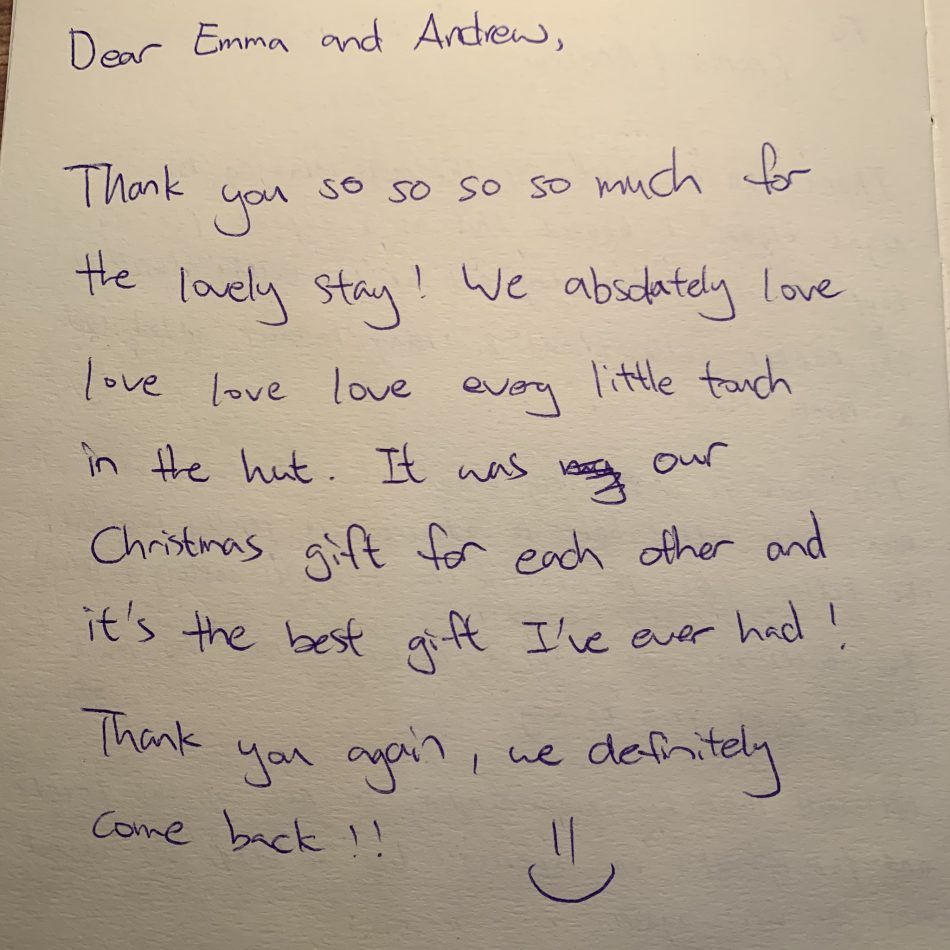 Dear Emma and Andrew,
Thank you so so so so much for
the lovely stay! We absolutely love
love love love every little touch
in the hut. It was our
Christmas gift for each other and
it's the best gift I've ever had!
Thank you again, we definitely
come back!!